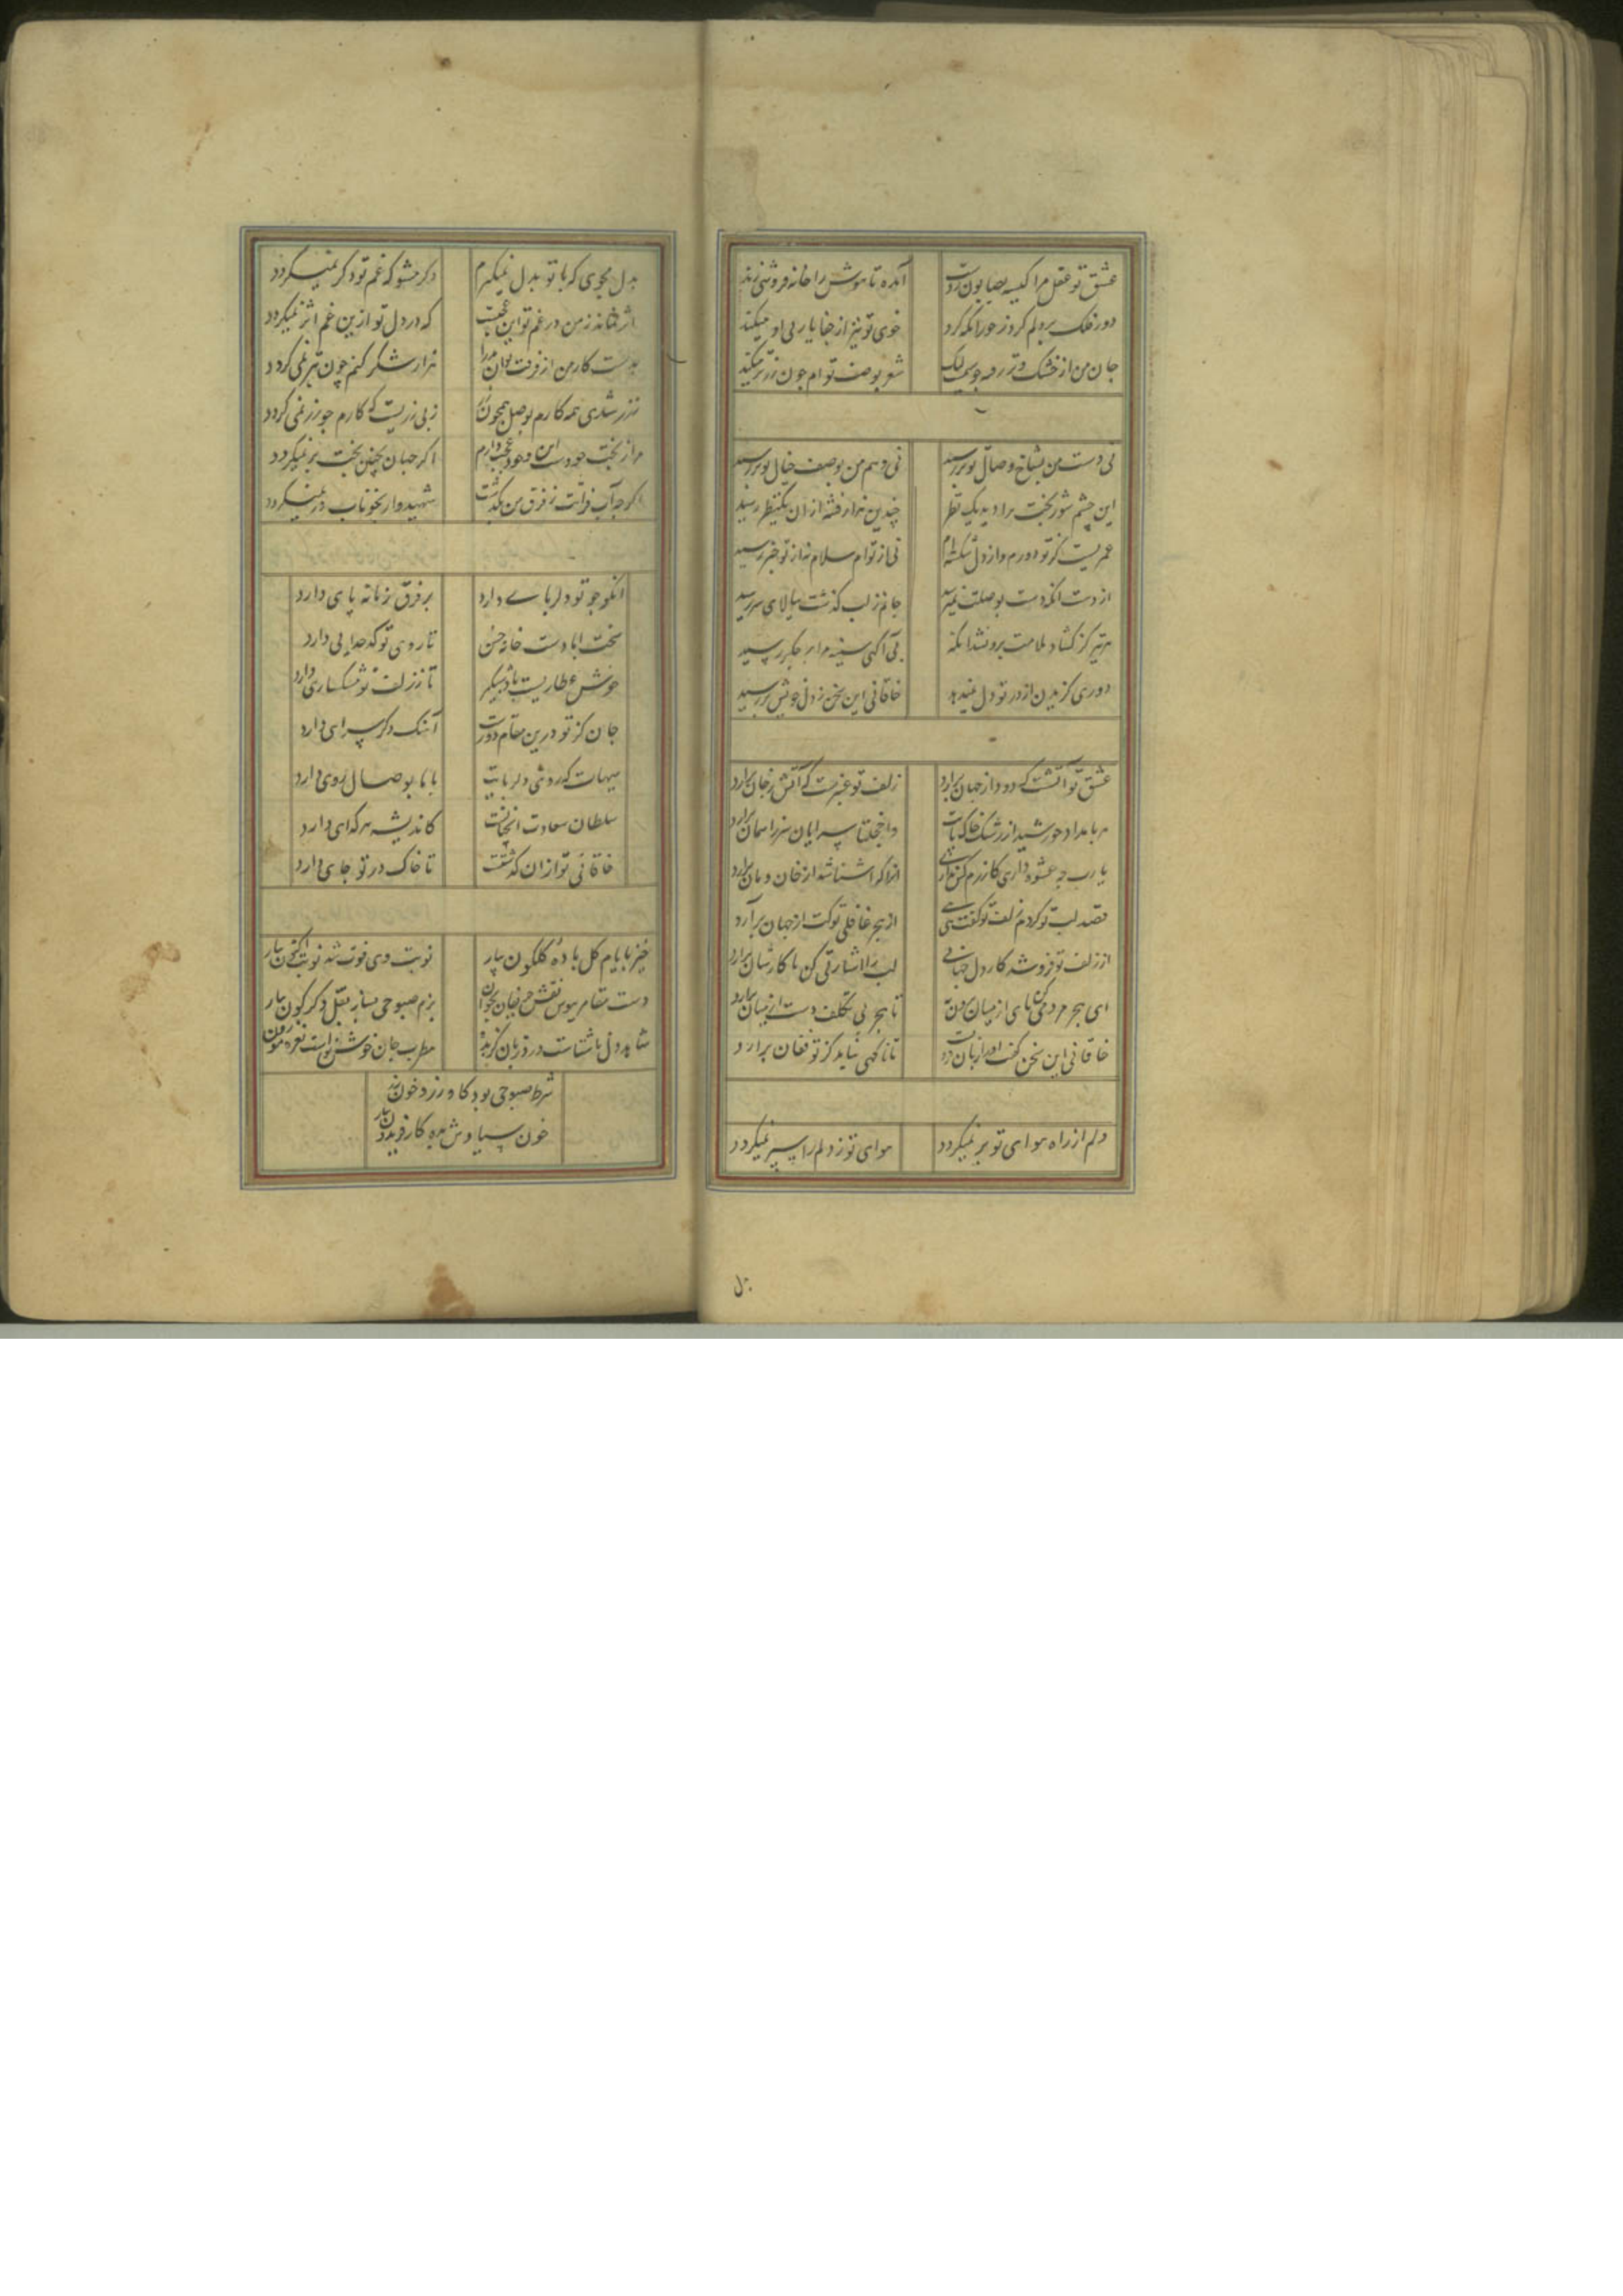 عشق تو عقل مرا کیسه بصابون زدست آمده تا هوش را خانه فروشی زند
دور فلک بر دلم کرد ز جور آنکه کرد خوی تو نیز از جفا یاری او میکند
جان من از خشک و تر رفت چو سیم لیک شعر بوصف توام چون زر تر میکند
نی دست من بشاخ وصال تو بر رسید نی وهم من بوصف خیال تو بر رسید
این چشم شوربخت ترا دید یک نظر چندین هزار فتنه ازان یکنظر رسید
عمریست کز تو دورم و از دل شکسته ام نی از توام سلام نه از تو خبر رسید
از دست آنکه دست بوصلت نمیرسد جانم ز لب گذشت ببالای سر رسید
هر تیر کز گشاد ملامت برون شد آنکه بی آگهی سینه مرا بر جگر رسید
دوری گزیدن از در تو دل نمیدهد خاقانی این سخن ز دل خویش بر رسید
عشق تو آتشست که دود از جهان برآرد زلف تو عنبرست که آتش ز جان برآرد
هر بامداد خورشید از رشک خاک پایت واخجلتا سرایان سر ز آسمان برآرد
یا رب چه عشوه داری کازرم کس نداری آنرا که آشنا شد از خان و مان برآرد
قصد لبت تو کردم زلف تو گفت هی هی از هجر غافلی تو کت از جهان برآرد
از زلف تو فرو شد کار دل جهانی لب را اشارتی کن تا کارشان برآرد
ای هجر مردمی کن پای از میان برون نه تا هجر بی تکلف دست از میان برآرد
خاقانی این سخن گفت او را زبان تا ناگهی نباید کز تو فغان برآرد
دلم از راه هوای تو بر نمیگردد هوای تو ز دلم راسپر نمیگردد
بدل
بدل مجوی که با تو بدل نمیگیرم دگر مشو که غم تو دگر نمیگردد
اثر نماند ز من در غم تو این عجبست که در دل تو ازین غم اثر نمیگردد
بدست کار من از فرقت هزار شکر کنم چون بتر نمی گردد
بزر شدی همه کارم بوصل همچون زر ز بی زریست که کارم چو زر نمی گردد
مرا ز بخت خودست این و هم عجب دارم اگر جهان بچنین بخت بر نمیگردد
اگرچه آب فراقت ز فرق من بگذشت شهیدوار بخوناب در نمیگردد
آنکو چو تو دلربای دارد بر فرق زمانه پای دارد
بخت ابادست خانه حسن تا روی تو کدخدایی دارد
خوش عطاریست باد شبگیر تا زلف تو مشکسای دارد
جان کز تو درین مقام دورست آهنگ دگر سرای دارد
هیهات که روشنی دلربایت با ما بوصال روی دارد
سلطان سعادت آنجاست کاندیشه هر گدای دارد
خاقانی تو ازان گذشتست تا خاک در تو جای دارد
خیز بایام گل باده گلگون بیار نوبت دی فوت شد نوبت اکنون بیار
دست مقامر ببوس نقش حریفان بخوان بزم صبوحی بساز نقل دگرگون بیار
شاهد دل ناشتاست درد زبان گزیده مطرب جان خوش نواست نغمه موزون
شرط صبوحی بود گاو زر و خون رز
خون سیاوش بده گاو فریدون بیار